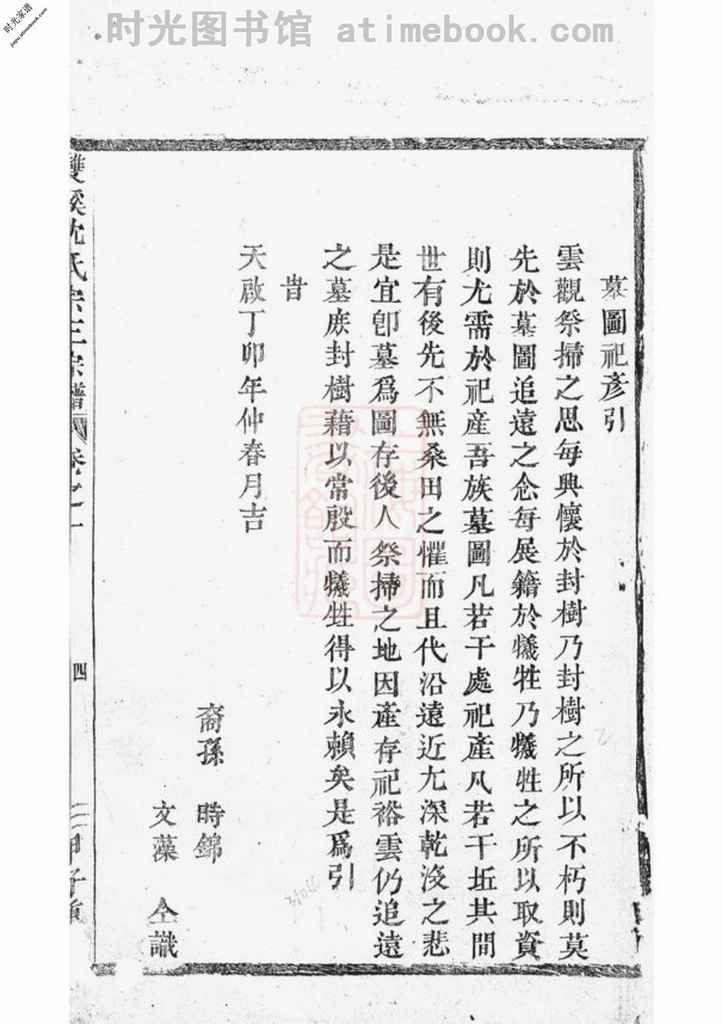 时光图书馆 atimebook.com
时光家谱
jiapu.atimebook.com
墓圖祀彥引
雲觀祭掃之思每興懷於封樹乃封樹之所以不朽則莫
先於墓圖追遠之念每展籍於犧牲乃犧牲之所以取資
則尤需於祀産吾族墓圖凡若干處祀產凡若干坵其間
世有後先不無桑田之懼而且代沿遠近尤深乾沒之悲
是宜卽墓爲圖存後人祭掃之地因產存祀裕雲仍追遠
之墓庶封樹藉以常殷而犧牲得以永賴矣是爲引
昔
天啟丁卯年仲春月吉
裔孫 時錦
文藻 仝識
雙溪沈氏宗譜 卷之一
四
甲子